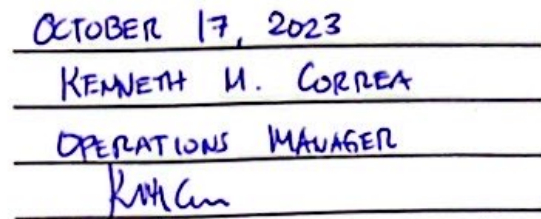 OCTOBER 17, 2023
KENNETH M. CORREA
OPERATIONS MANAGER